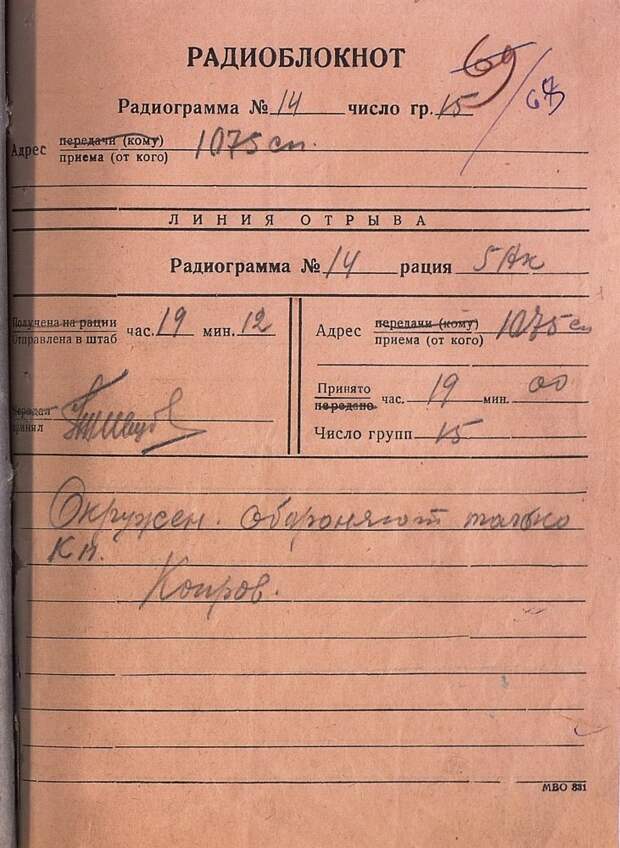 РАДИОБЛОКНОТ
69
/ 67
Радиограмма № 14 число гр. 15
Адрес передачи (кому) 1075 сп.
приема (от кого)
ЛИНИЯ ОТРЫВА
Радиограмма № 14 рация 5Ак
Получена на рации
Отправлена в штаб час. 19 мин. 12
Передал
Принял
Адрес передачи (кому) 1075 сп
приема (от кого)
Принято
передано час. 19 мин. 00
Число групп 15
Окружен. обороняют только
Кп.
Копров.
МВО 831